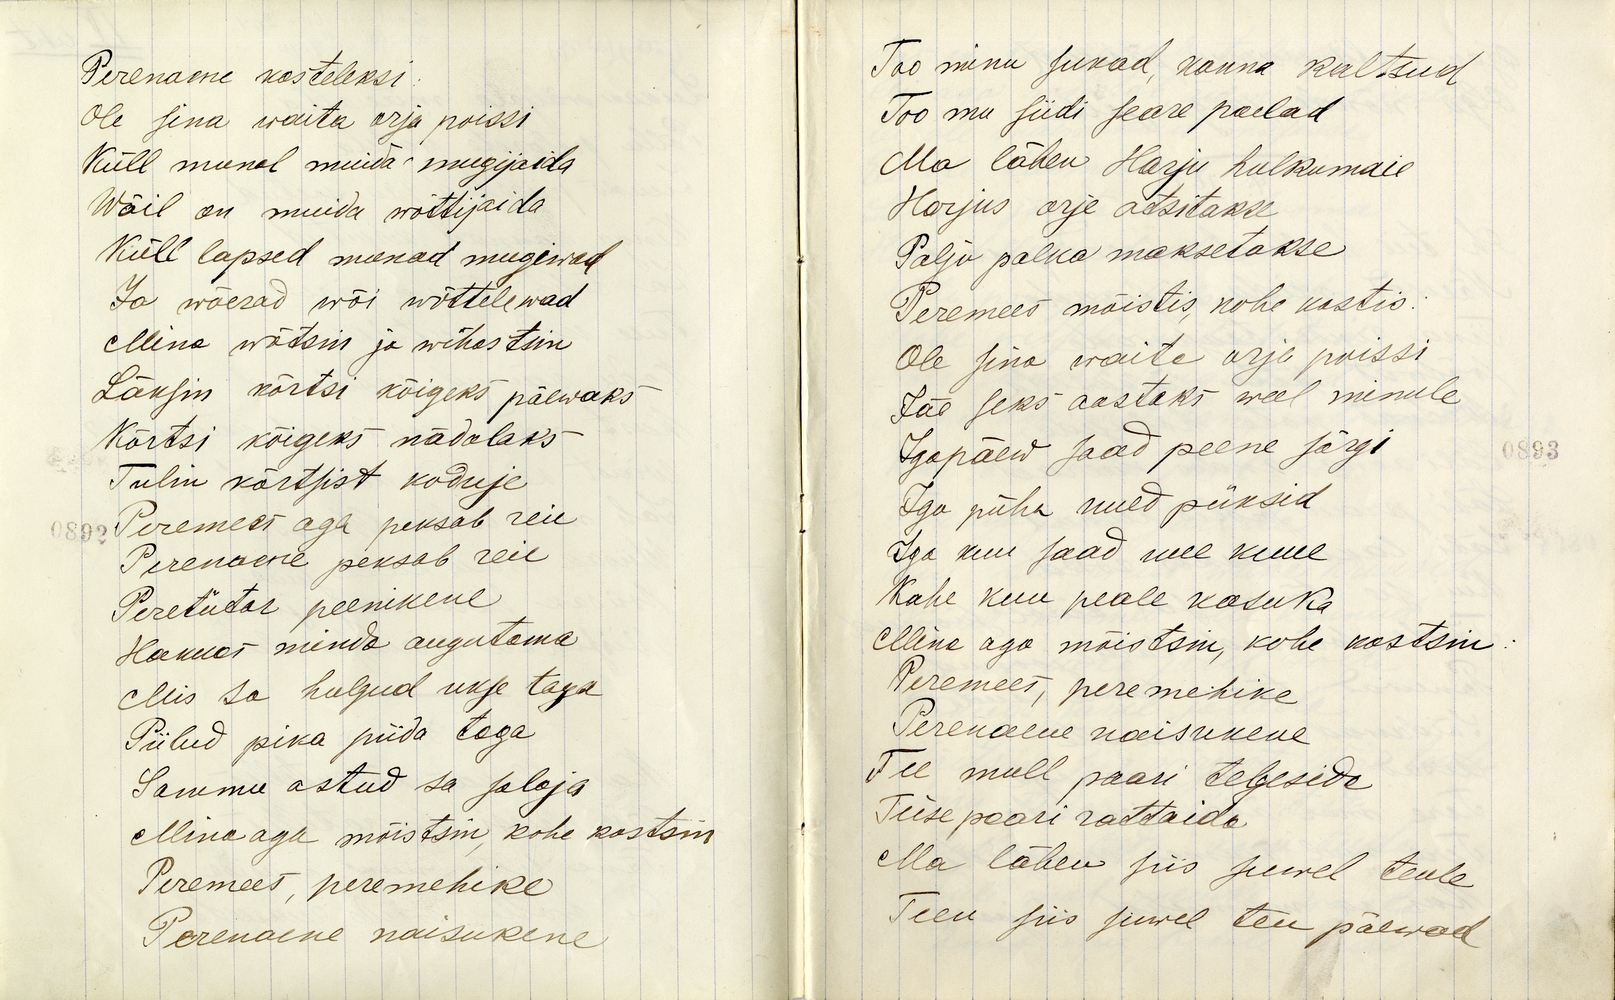 Perenaene kosteleksi:
Ole sina waita orja poissi
Küll munal muida mugijaida
Wäil on muida wõttijaida
Küll lapsed munad mugiwad
Ja wõerad wõi wõttelewad
Mina wõtsin ja wihastsin
Läksin kõrtsi kõigeks päewaks
Kõrtsi kõigeks nädalaks
Tulin kõrtsist koduje
Peremees aga peksab reie
0892
Perenaene peksab reie
Peretütar peenikene
Hakkas minda augutama
Mis sa hulgud ukse taga
Piilud pika piida taga
Sammu astud sa salaja
Mina aga mõistsin, kohe kostsin
Peremees, peremehike
Perenaene naisukene
Too minu sukad, kanna kaltsud
Too mu siidi seare paelad
Ma lähen Harju hulkumaie
Harjus orje otsitakse
Palju palka maksetakse
Peremees mõistis, kohe kostis:
Ole sina waita orja poissi
Jäe seks aastaks weel minule
Igapäew saad peene särgi
0893
Iga püha uued püksid
Iga kuu saad uue kuue
Kahe kuu peale kasuka
Mina aga mõistsin, kohe kostsin:
Peremees, peremehike
Perenaene naisukene
Tee mull paari telgesida
Teise paari rattaida
Ma lähen siis suwel teule
Teen siis suwel teu päewad